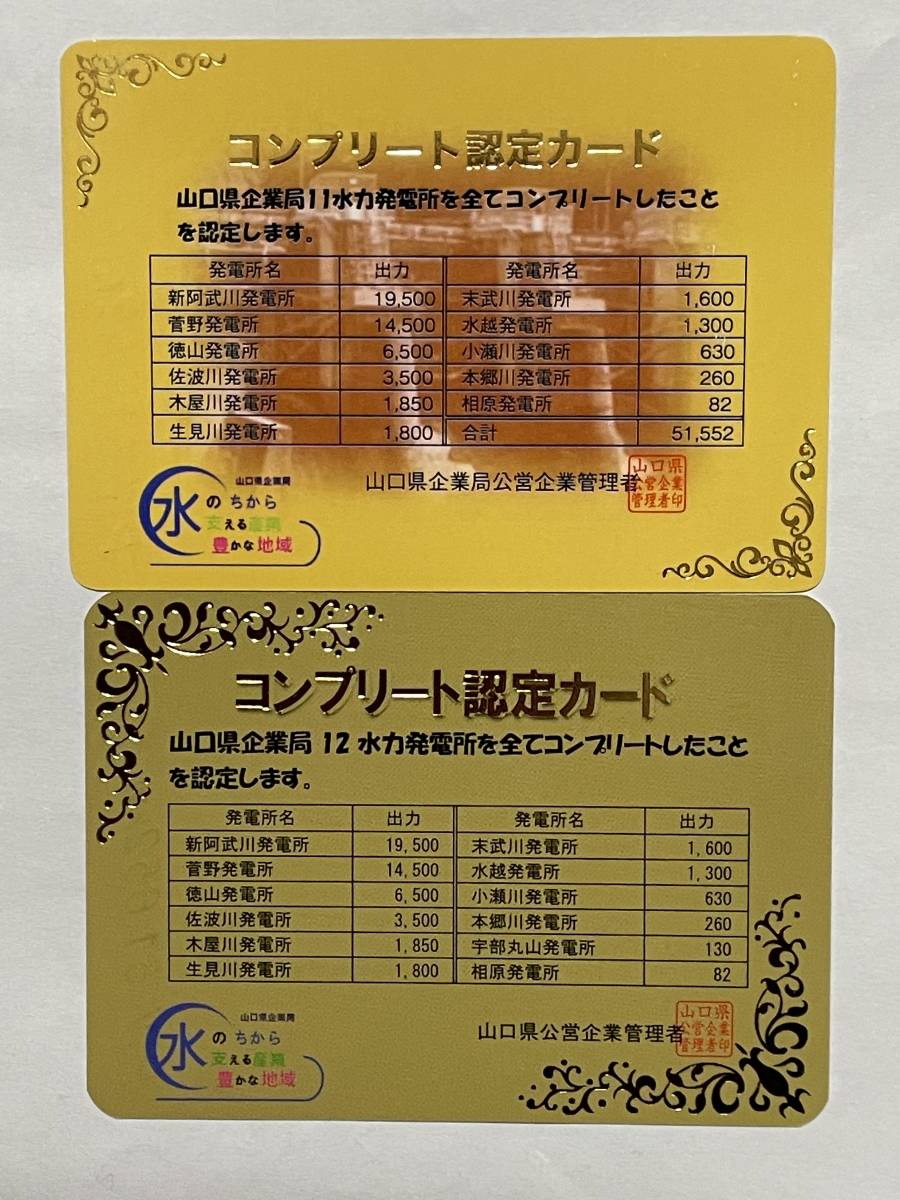 コンプリート認定カード
山口県企業局11水力発電所を全てコンプリートしたこと
を認定します。
発電所名 出力 発電所名 出力
新阿武川発電所 19,500 末武川発電所 1,600
菅野発電所 14,500 水越発電所 1,300
徳山発電所 6,500 小瀬川発電所 630
佐波川発電所 3,500 本郷川発電所 260
木屋川発電所 1,850 相原発電所 82
生見川発電所 1,800 合計 51,552
山口県企業局公営企業管理者
山口県
公営企業
管理者印
山口県企業局
水の ちから
支える産業
豊かな地域
コンプリート認定カード
山口県企業局 12 水力発電所を全てコンプリートしたこと
を認定します。
発電所名 出力 発電所名 出力
新阿武川発電所 19,500 末武川発電所 1,600
菅野発電所 14,500 水越発電所 1,300
徳山発電所 6,500 小瀬川発電所 630
佐波川発電所 3,500 本郷川発電所 260
木屋川発電所 1,850 宇部丸山発電所 130
生見川発電所 1,800 相原発電所 82
山口県公営企業管理者
山口県
公営企業
管理者印
山口県企業局
水の ちから
支える産業
豊かな地域